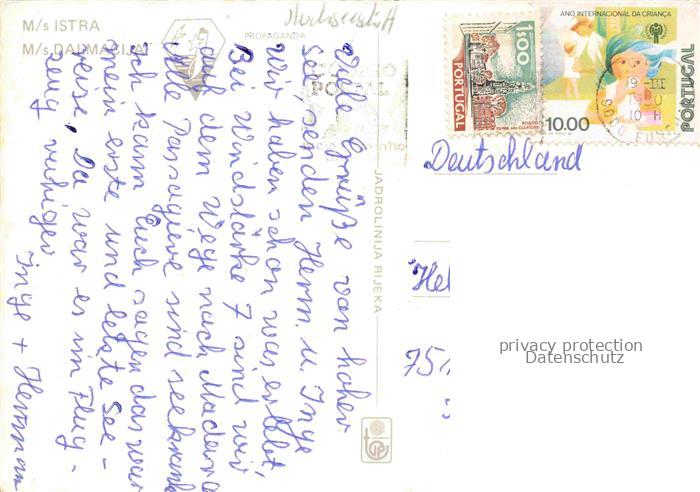 M/s ISTRA
M/s DALMACIJA
PROPAGANDA
CÓDIGO
POSTAL
Viele Grüße von hoher
See, senden Herm. u. Inge
Wir haben schon was erlebt,
Bei Windstärke 7 sind wir
auf dem Wege nach Madeira
Alle Passagiere sind seekrank
Ich kann Euch sagen das war
mein erste und letzte See-
reise, Da war es im Flug-
zeug ruhiger
Inge + Hermann
JADROLINIJA RIJEKA
1$00
PORTUGAL
PORTO
TORRE DOS CLÉRIGOS
ANO INTERNACIONAL DA CRIANÇA
10.00
PORTUGAL
19-III
1980
10 H
FUN
Deutschland
Hel
75
privacy protection
Datenschutz